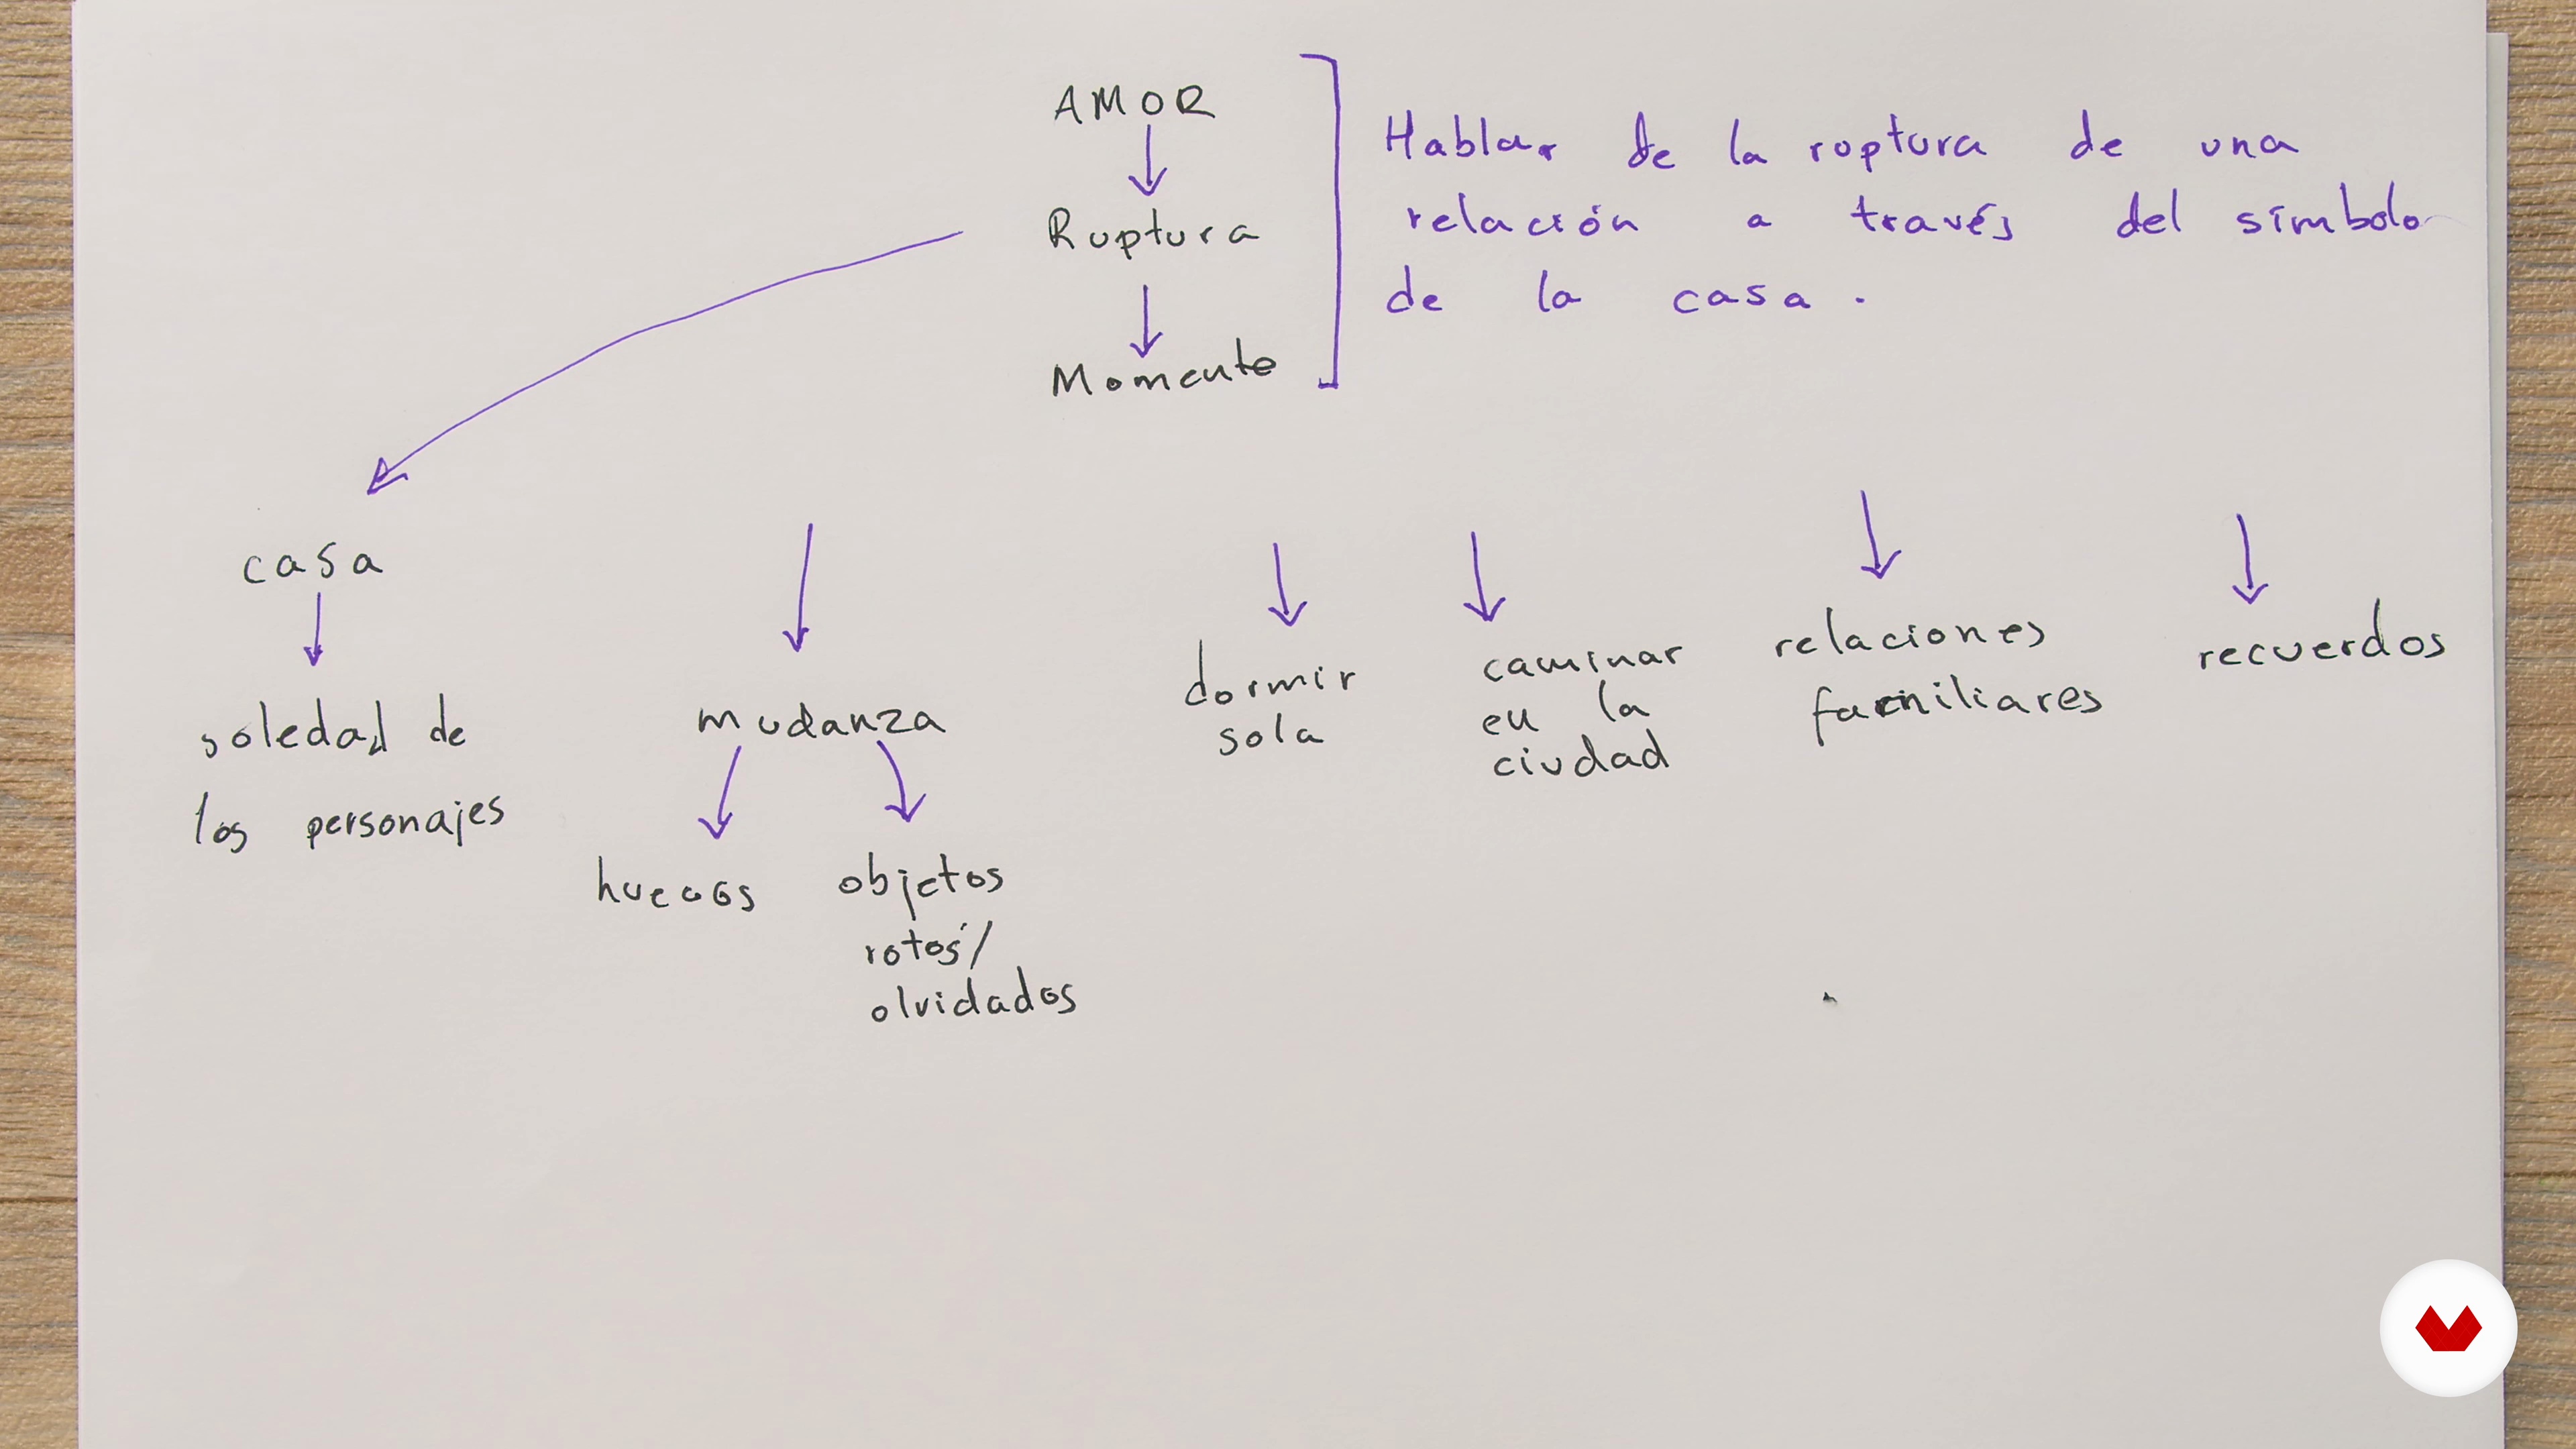 AMOR
Ruptura
Momento
Hablar de la ruptura de una
relación a través del símbolo
de la casa.
casa
soledad de
los personajes
mudanza
huecos
objetos
rotos/
olvidados
dormir
sola
caminar
en la
ciudad
relaciones
familiares
recuerdos